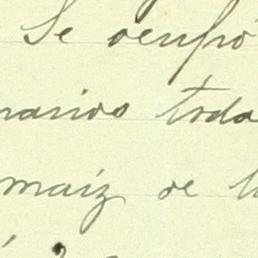 Se ocupó
narios toda
maíz se